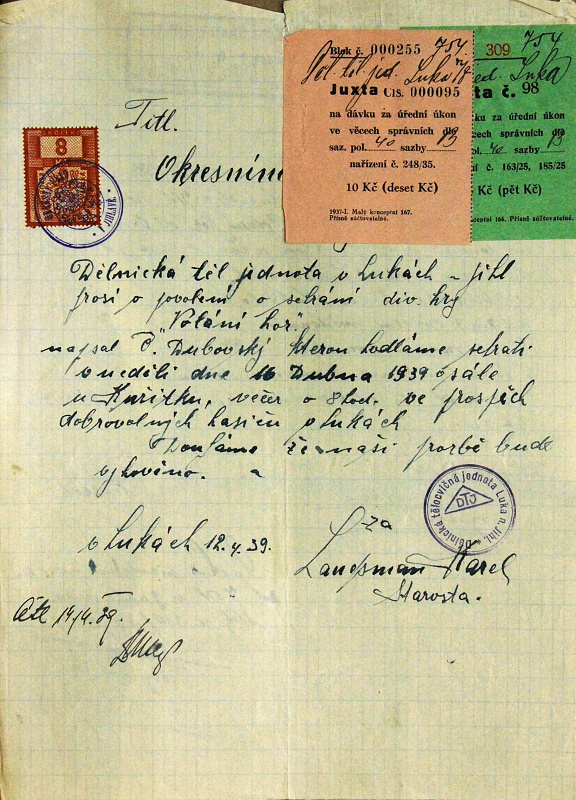 Blok č. 000255 754
Pol. těl. jed. Luka n/J
Juxta Čís. 000095
na dávku za úřední úkon
ve věcech správních dle
saz. pol. 40 sazby B
nařízení č. 248/35.
10 Kč (deset Kč)
1937-I. Malý konceptní 167.
Přísně súčtovatelné.
309 754
jed. Luka
ta č. 98
ku za úřední úkon
ěcech správních dle
40 sazby B
í č. 163/25, 185/25
Kč (pět Kč)
nceptní 166. Přísně súčtovatelné.
8
JIHLAVĚ
Titl.
Okresním
Dělnická těl jednota v Lukách - Jihl
prosí o povolení o sehrání div. hry
"Volání hor".
napsal Č. Dubovský kterou hodláme sehrati
v neděli dne 16 Dubna 1939 v sále
u Kuřítku, večer o 8 hod. ve prospěch
dobrovolných hasičů v Lukách
Doufáme že naší prozbě bude
vyhověno.
v Lukách 12.4.39.
Dělnická tělocvičná jednota Luka n. Jihl.
DTJ
za
Landsman Karel
Starosta.
14/4. 39.